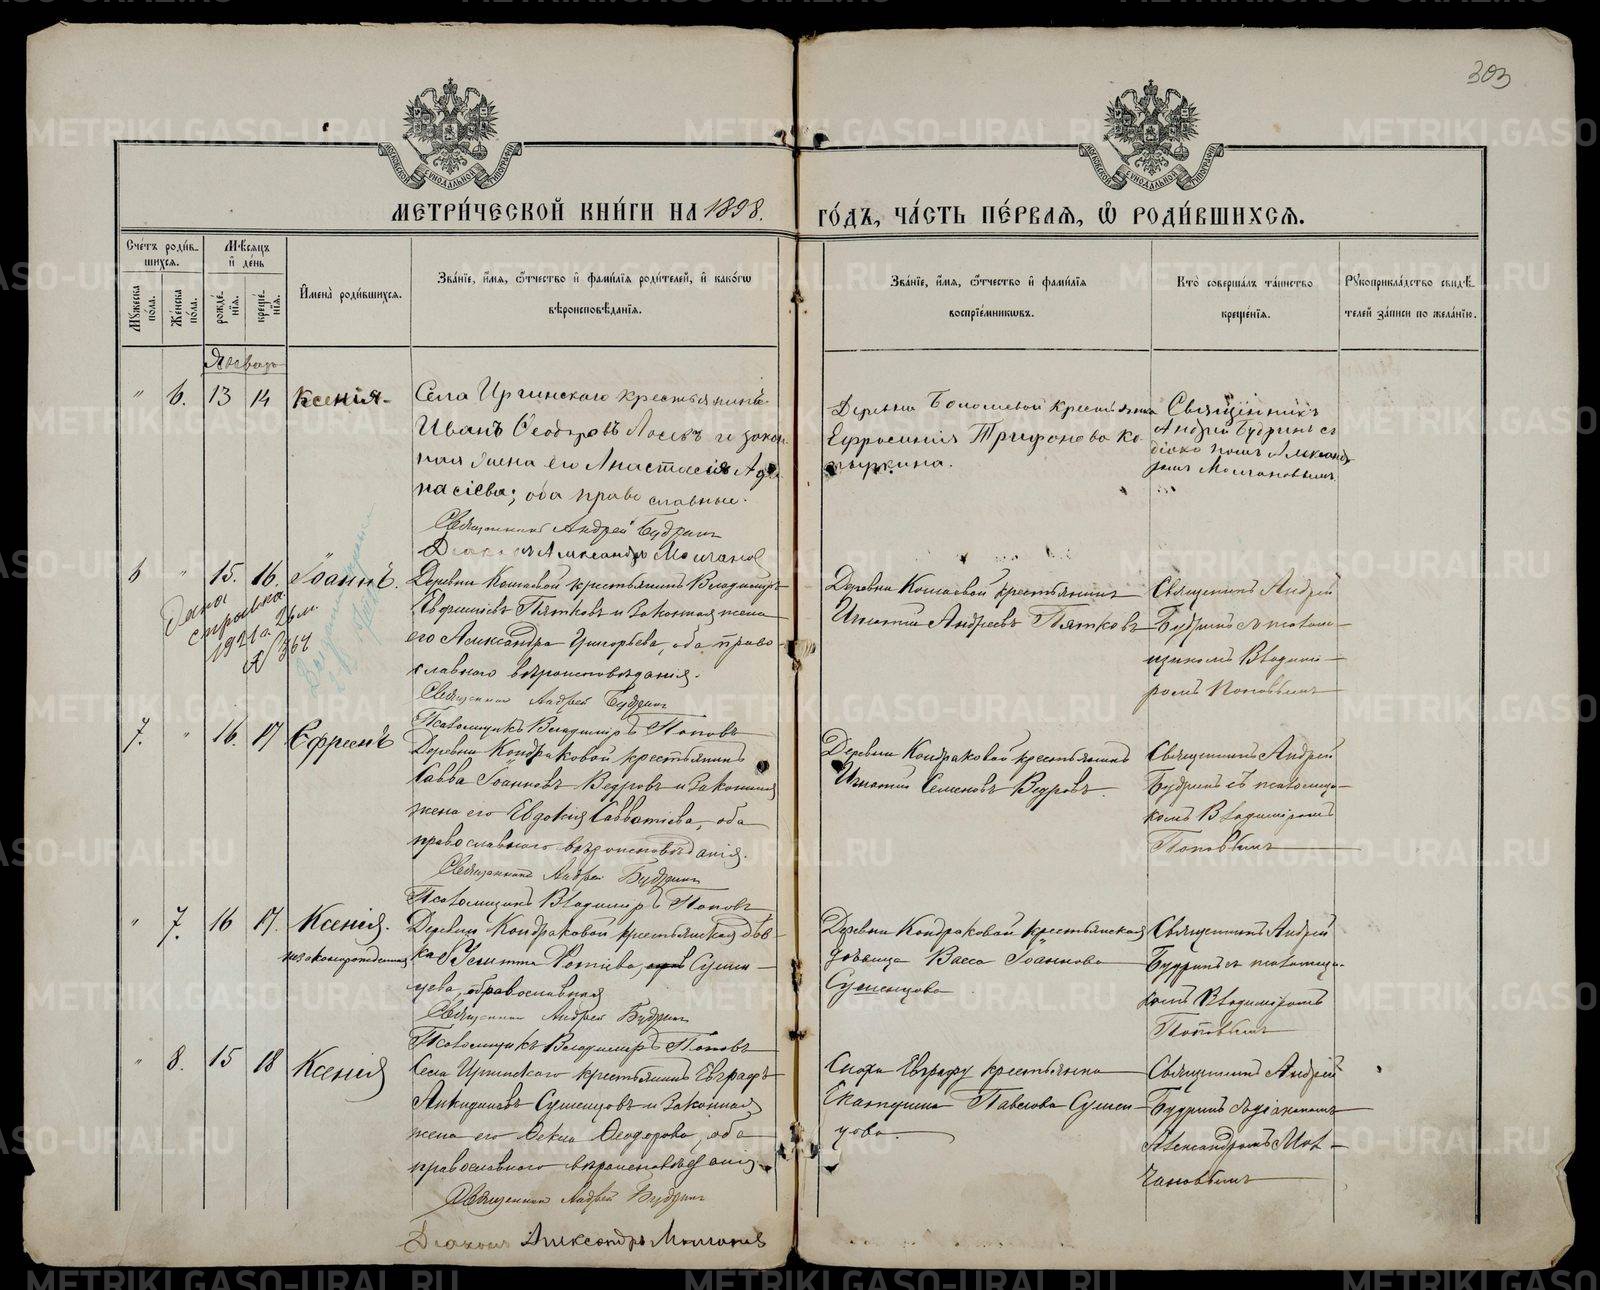 303
МОСКОВСКОЙ СѴНОДАЛЬНОЙ ТИПОГРАФІИ
МОСКОВСКОЙ СѴНОДАЛЬНОЙ ТИПОГРАФІИ
МЕТРИ́ЧЕСКОЙ КНИ́ГИ НА 1898.
ГО́ДЪ, ЧА́СТЬ ПЕ́РВАЯ, Ѿ РОДИ́ВШИХСЯ.
Сче́тъ роди́в-
шихся.
Мѹ́жеска по́ла.
Же́нска по́ла.
Мѣ́сяцъ
и҆ де́нь
рожде́-
нїя.
креще́-
нїя.
И҆мена̀ роди́вшихся.
Зва́нїе, и҆́мя, ѻ҆́тчество и҆ фами́лїя роди́телей, и҆ како́гѡ
вѣроисповѣ́данїя.
Зва́нїе, и҆́мя, ѻ҆́тчество и҆ фами́лїя
воспрїе́мникѡвъ.
Кто̀ соверша́лъ та́инство
креще́нїя.
Рѹкоприкла́дство свидѣ́-
телей за́писи по жела́нїю.
Январь
" 6. 13 14 Ксенія-
Села Иргинскаго крестьянинъ
Иванъ Ѳеодоровъ Лосевъ и закон-
ная жена его Анастасія Аѳа-
насіева; оба православные.
Священникъ Андрей Будринъ
Діаконъ Александръ Молчановъ
Деревни крестьянка
Ефросинія Трифонова Ко-
пыркина.
Священникъ
Андрей Будринъ съ
діакономъ Александ-
ромъ Молчановымъ
6 " 15. 16. Іоаннъ.
Дана
справка
1921 г. 26
№ 364
Деревни Кошаевой крестьянинъ Владиміръ
Евфиміевъ Пятковъ и законная жена
его Александра Григорьева, оба право-
славнаго вѣроисповѣданія.
Священникъ Андрей Будринъ
Псаломщикъ Владиміръ Поповъ
Деревни Кошаевой крестьянинъ
Игнатій Андреевъ Пятковъ
Священникъ Андрей
Будринъ съ псалом-
щикомъ Владимі-
ромъ Поповымъ
7. " 16. 17 Ефремъ
Деревни Кондраковой крестьянинъ
Савва Іоанновъ Ведровъ и законная
жена его Евдокія Савватіева, оба
православнаго вѣроисповѣданія.
Священникъ Андрей Будринъ
Псаломщикъ Владиміръ Поповъ
Деревни Кондраковой крестьянинъ
Игнатій Семеновъ Ведровъ.
Священникъ Андрей
Будринъ съ псаломщи-
комъ Владиміромъ
Поповымъ
" 7. 16 17. Ксенія.
незаконнорожденная
Деревни Кондраковой крестьянская дѣв-
ка Фотіева, Сушен-
цева, православная
Священникъ Андрей Будринъ
Псаломщикъ Владиміръ Поповъ
Деревни Кондраковой крестьянская
дѣвица Васса Іоаннова
Сушенцова
Священникъ Андрей
Будринъ съ псаломщи-
комъ Владиміромъ
Поповымъ
" 8. 15 18 Ксенія
Села Иргинскаго крестьянинъ Евграфъ
Аникидиновъ Сушенцовъ и законная
жена его Ѳекла Ѳеодорова, оба
православнаго вѣроисповѣданія.
Священникъ Андрей Будринъ
Діаконъ Александръ Молчановъ
Сноха Евграфу крестьянка
Екатерина Павлова Сушен-
цова.
Священникъ Андрей
Будринъ съ діакономъ
Александромъ Мол-
чановымъ